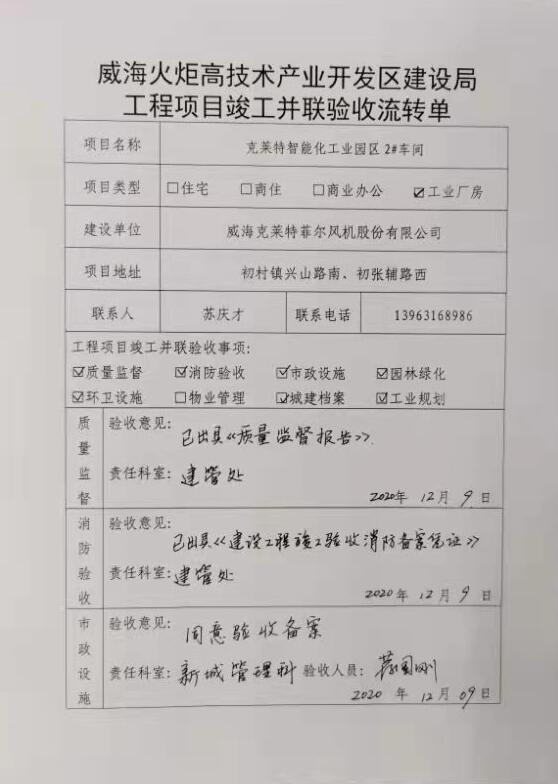 威海火炬高技术产业开发区建设局
工程项目竣工并联验收流转单
项目名称 克莱特智能化工业园区 2#车间
项目类型 □住宅 □商住 □商业办公 ☑工业厂房
建设单位 威海克莱特菲尔风机股份有限公司
项目地址 初村镇兴山路南、初张辅路西
联系人 苏庆才 联系电话 13963168986
工程项目竣工并联验收事项:
☑质量监督 ☑消防验收 ☑市政设施 ☑园林绿化
☑环卫设施 □物业管理 ☑城建档案 ☑工业规划
质量监督 验收意见: 已出具《质量监督报告》.
责任科室: 建管处
2020年 12月 9日
消防验收 验收意见: 已出具《建设工程竣工验收消防备案凭证》
责任科室: 建管处
2020年 12月 9日
市政设施 验收意见: 同意验收备案
责任科室: 新城管理科 验收人员: 国刚
2020年 12月 09日